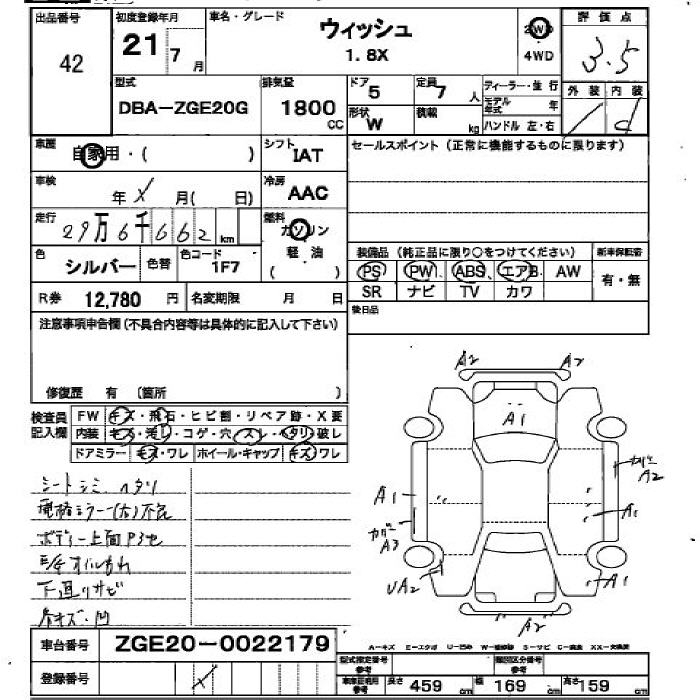 出品番号 初度登録年月 車名・グレード 評価点
42 21 7月 ウィッシュ 2WD 3.5
1.8X 4WD
型式 排気量 ドア 定員 ディーラー・並行 外装 内装
DBA-ZGE20G 1800 CC 5 7人 モデル年式 年 d
形状 W 積載 kg ハンドル 左・右
車歴 自家用・( ) シフト IAT セールスポイント (正常に機能するものに限ります)
車検 年 X 月( 日) 冷房 AAC
走行 29万6千662 km 燃料 ガソリン
軽・油
( )
色 シルバー 色替 色コード 1F7
装備品 (純正品に限り○をつけてください) 新車保証書
PS PW ABS エアB AW 有・無
SR ナビ TV カワ
R券 12,780 円 名変期限 月 日
後日品
注意事項申告欄 (不具合内容等は具体的に記入して下さい)
修復歴 有 (箇所 )
検査員記入欄 FW キズ・飛石・ヒビ割・リペア跡・X要
内装 キズ・汚レ・コゲ・穴・スレ・ヘタリ・破レ
ドアミラー キズ・ワレ ホイール・キャップ キズ・ワレ
シートシミ ヘタリ
ボディー上面
下廻リサビ
A2 A2
A1
カバー A2
A1 A1
カバー A3
UA2 A1
A2
車台番号 ZGE20-0022179
登録番号 X
A-キズ E-エクボ U-凹み W-補修跡 S-サビ C-腐食 XX-交換済
型式指定番号 参考 類別区分番号 参考
車庫証明用 参考 長さ 459 cm 幅 169 cm 高さ 159 cm